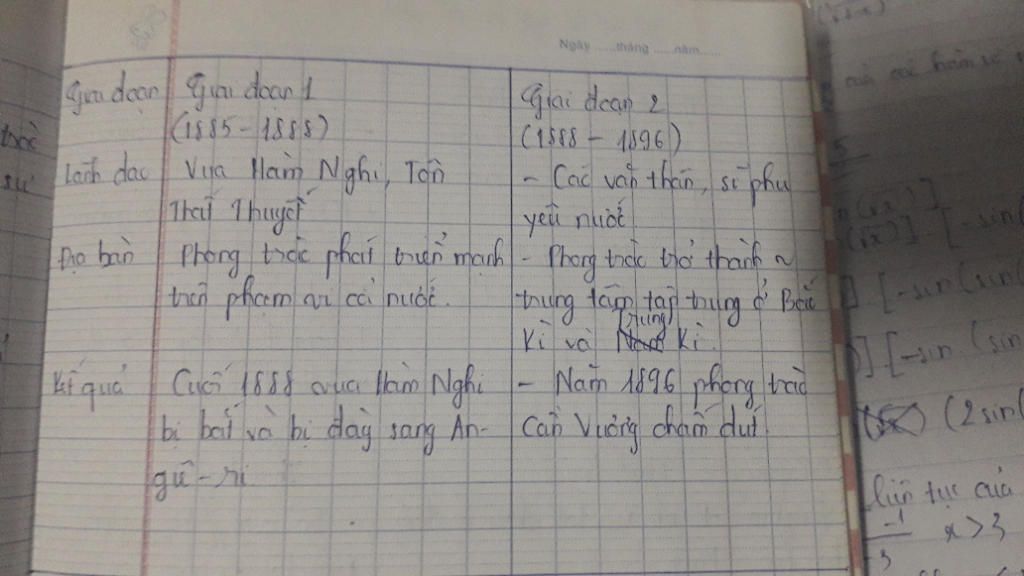 Ngày ......tháng ......năm......
Giai đoạn
Giai đoạn 1
(1885 - 1888)
Giai đoạn 2
(1888 - 1896)
Lãnh đạo
Vua Hàm Nghi, Tôn
Thất Thuyết
- Các văn thân, sĩ phu
yêu nước
Địa bàn
Phong trào phát triển mạnh
trên phạm vi cả nước.
- Phong trào trở thành ~
trung tâm tập trung ở Bắc
Kì và Trung Kì.
Kết quả
Cuối 1888 vua Hàm Nghi
bị bắt và bị đày sang An-
giê-ri
- Năm 1896 phong trào
Cần Vương chấm dứt.
trào
sự
của các hàm số
5
(√x)] . [-sin(
] . [-sin(sin(
)] [-sin (sin
(2sin(
liên tục của
-1
3
x > 3